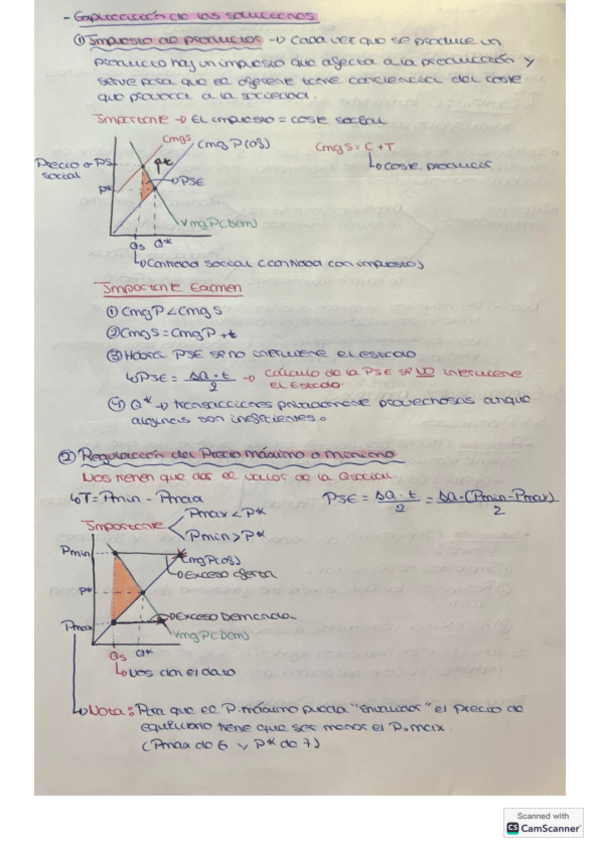 - Explicación de las soluciones
① Impuesto de productos → Cada vez que se produce un
producto hay un impuesto que afecta a la producción y
sirve para que el oferente tome conciencia del coste
que provoca a la sociedad.
Importante → El impuesto = coste social
CmgS
CmgP(Of)
CmgS = C + T
↳ coste productor
Precio social
PS
pt
P*
PSE
VmgP(Dem)
Qs Q*
↳ Cantidad social (cantidad con impuestos)
Importante Examen
① CmgP < CmgS
② CmgS = CmgP + t
③ Habrá PSE si no interviene el estado
↳ PSE = ΔQ · t / 2 → Cálculo de la PSE si NO interviene
el Estado.
④ Q* → transacciones privadamente provechosas aunque
algunas son ineficientes.
② Regulación del Precio máximo o mínimo
Nos tienen que dar el valor de la Qsocial
↳ T = Pmin - Pmax
PSE = ΔQ · t / 2 = ΔQ · (Pmin - Pmax) / 2
Importante
Pmax < P*
Pmin > P*
Pmin
CmgP(Of)
Exceso oferta
P*
Exceso Demanda
Pmax
VmgP(Dem)
Qs Q*
↳ Nos dan el dato
↳ Nota: Para que el P. máximo pueda
el precio de
equilibrio tiene que ser menor el P. max.
(Pmax de 6 y P* de 7)
Scanned with
CS CamScanner